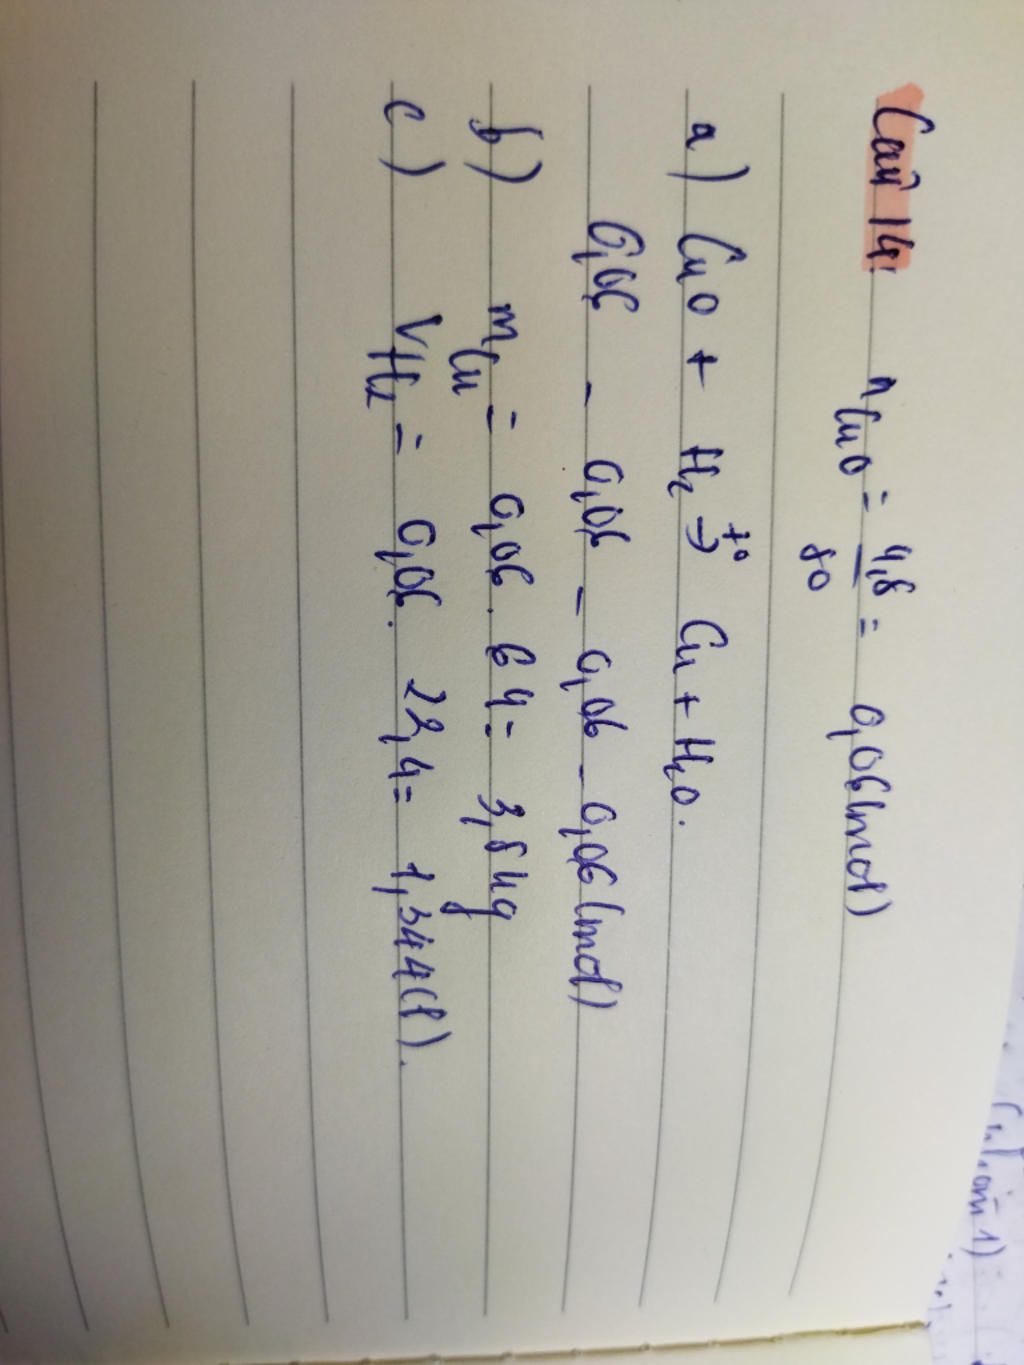 Câu 14:
nCuO = 4,8/80 = 0,06(mol)
a) CuO + H2 →t° Cu + H2O.
0,06 - 0,06 - 0,06 - 0,06(mol)
b) mCu = 0,06. 64 = 3,84g
c) VH2 = 0,06. 22,4 = 1,344(l).